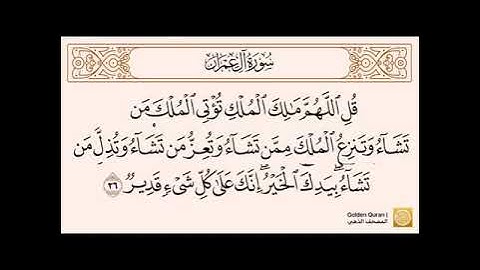 سُورَةُ آلِ عِمْرَانَ
قُلِ ٱللَّهُمَّ مَٰلِكَ ٱلْمُلْكِ تُؤْتِى ٱلْمُلْكَ مَن
تَشَآءُ وَتَنزِعُ ٱلْمُلْكَ مِمَّن تَشَآءُ وَتُعِزُّ مَن تَشَآءُ وَتُذِلُّ مَن
تَشَآءُ ۖ بِيَدِكَ ٱلْخَيْرُ ۖ إِنَّكَ عَلَىٰ كُلِّ شَىْءٍ قَدِيرٌ ٢٦
Golden Quran |
المصحف الذهبي